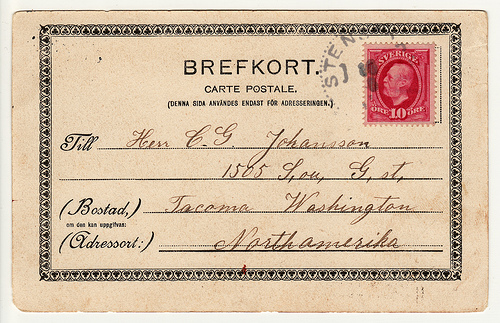 BREFKORT.
CARTE POSTALE.
(DENNA SIDA ANVÄNDES ENDAST FÖR ADRESSERINGEN.)
STEN
SVERIGE
ÖRE 10 ÖRE
Till Herr C. G. Johansson
1505 So, G, st,
(Bostad,) Tacoma Washington
om den kan uppgifvas:
(Adressort:) Northamerika